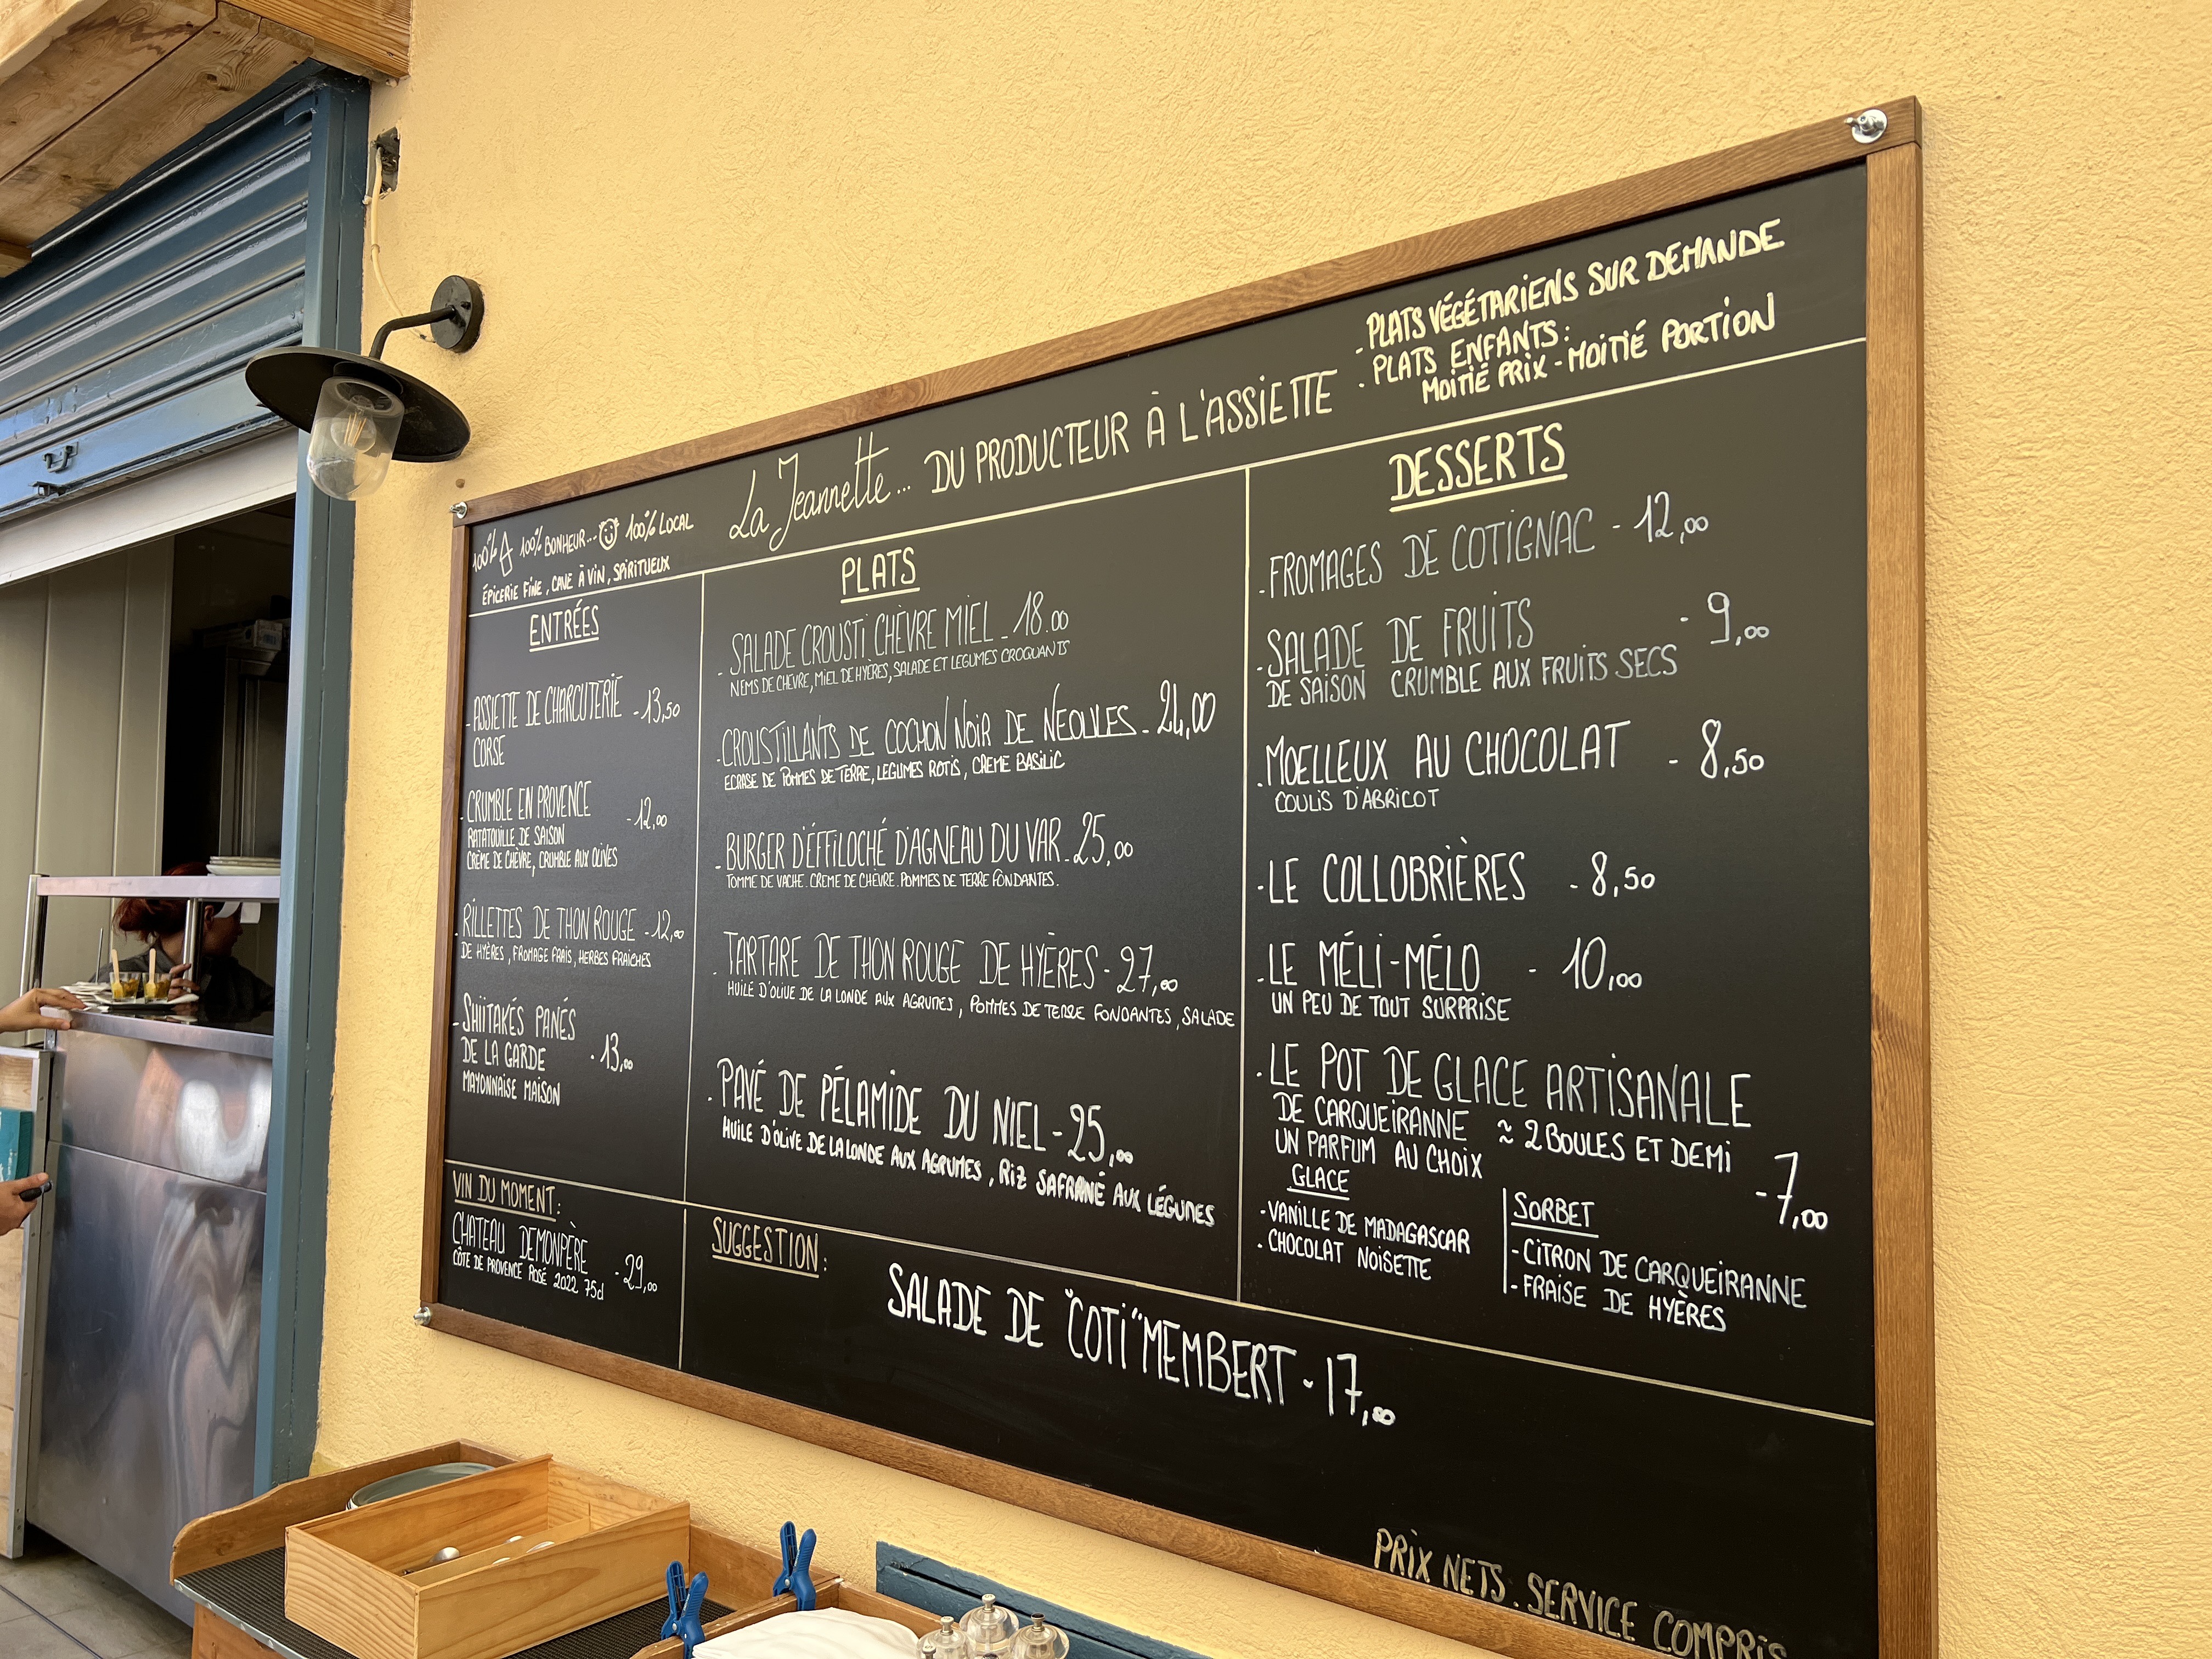 La Jeannette... DU PRODUCTEUR À L'ASSIETTE
- PLATS VÉGÉTARIENS SUR DEMANDE
- PLATS ENFANTS:
MOITIÉ PRIX - MOITIÉ PORTION
100% 100% BONHEUR... 100% LOCAL
ÉPICERIE FINE, CAVE À VIN, SPIRITUEUX
ENTRÉES
- ASSIETTE DE CHARCUTERIE - 13,50
CORSE
- CRUMBLE EN PROVENCE
RATATOUILLE DE SAISON - 12,00
CRÈME DE CHÈVRE, CRUMBLE AUX OLIVES
- RILLETTES DE THON ROUGE - 12,00
DE HYÈRES, FROMAGE FRAIS, HERBES FRAICHES
- SHIITAKÉS PANÉS
DE LA GARDE - 13,00
MAYONNAISE MAISON
VIN DU MOMENT:
CHATEAU DEMONPÈRE
CÔTE DE PROVENCE ROSÉ 2022 75cl - 29,00
PLATS
- SALADE CROUSTI CHÈVRE MIEL - 18.00
NEMS DE CHEVRE, MIEL DE HYÈRES, SALADE ET LEGUMES CROQUANTS
- CROUSTILLANTS DE COCHON NOIR DE NEOULES - 24,00
ECRASE DE POMMES DE TERRE, LEGUMES ROTIS, CREME BASILIC
- BURGER D'ÉFFILOCHÉ D'AGNEAU DU VAR - 25,00
TOMME DE VACHE. CREME DE CHÈVRE. POMMES DE TERRE FONDANTES.
- TARTARE DE THON ROUGE DE HYÈRES - 27,00
HUILE D'OLIVE DE LA LONDE AUX AGRUMES, POMMES DE TERRE FONDANTES, SALADE
- PAVÉ DE PÉLAMIDE DU NIEL - 25,00
HUILE D'OLIVE DE LA LONDE AUX AGRUMES, RIZ SAFRANÉ AUX LÉGUMES
SUGGESTION:
SALADE DE "COTI"MEMBERT - 17,00
DESSERTS
- FROMAGES DE COTIGNAC - 12,00
- SALADE DE FRUITS - 9,00
DE SAISON CRUMBLE AUX FRUITS SECS
- MOELLEUX AU CHOCOLAT - 8,50
COULIS D'ABRICOT
- LE COLLOBRIÈRES - 8,50
- LE MÉLI-MÉLO - 10,00
UN PEU DE TOUT SURPRISE
- LE POT DE GLACE ARTISANALE
DE CARQUEIRANNE ≈ 2 BOULES ET DEMI
UN PARFUM AU CHOIX - 7,00
GLACE
- VANILLE DE MADAGASCAR
- CHOCOLAT NOISETTE
SORBET
- CITRON DE CARQUEIRANNE
- FRAISE DE HYÈRES
PRIX NETS. SERVICE COMPRIS